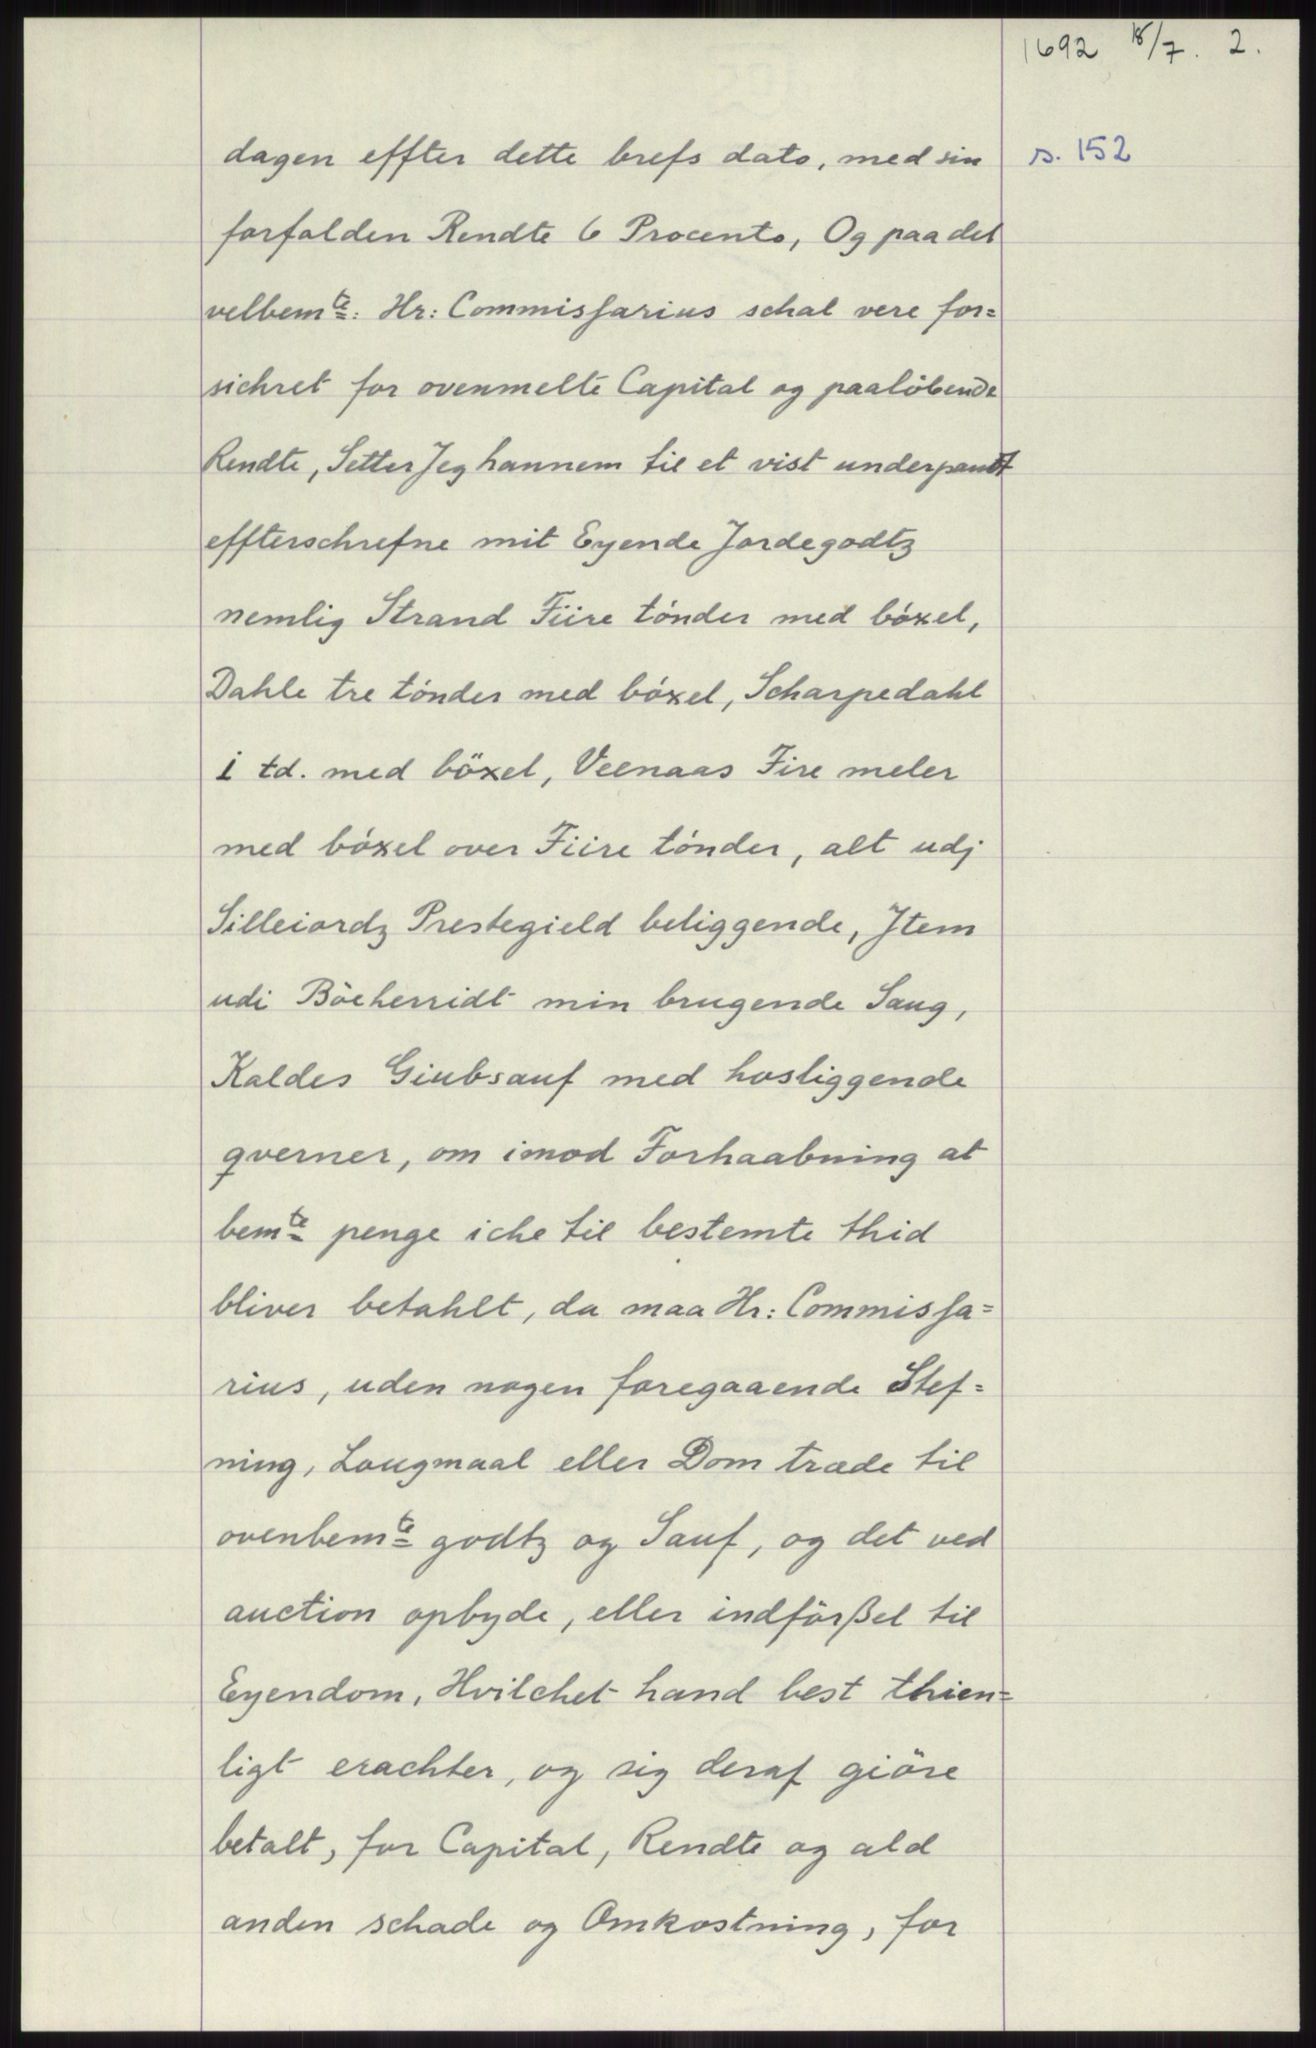 1692 18/7. 2.
s. 152
dagen effter dette brefs dato, med sin
forfalden Rendte 6 Procento, Og paa det
velbemte: Hr: Commissarius schal vere for=
sichret for ovenmelte Capital og paalöbende
Rendte, Setter Jeg hannem til et vist underpandt
effterschrefne mit Eyende Jordegodtz
nemlig Strand Fiire tónder med bóxel,
Dahle tre tónder med bóxel, Scharpedahl
i td. med böxel, Veenaas Fire meler
med bóxel over Fiire tónder, alt udj
Silleiordz Prestegield beliggende, Jtem
udi Böeherridt min brugende Saug,
Kaldes Giubsauf med hosliggende
qverner, om imod Forhaabning at
bemte penge iche til bestemte thid
bliver betahlt, da maa Hr: Commissa=
rius, uden nogen foregaaende Stef=
ning, Lougmaal eller Dom træde til
ovenbemte godtz og Sauf, og det ved
auction opbyde, eller indförßel til
Eyendom, Hvilchet hand best thien=
ligt erachter, og sig deraf giöre
betalt, for Capital, Rendte og ald
anden schade og Omkostning, for